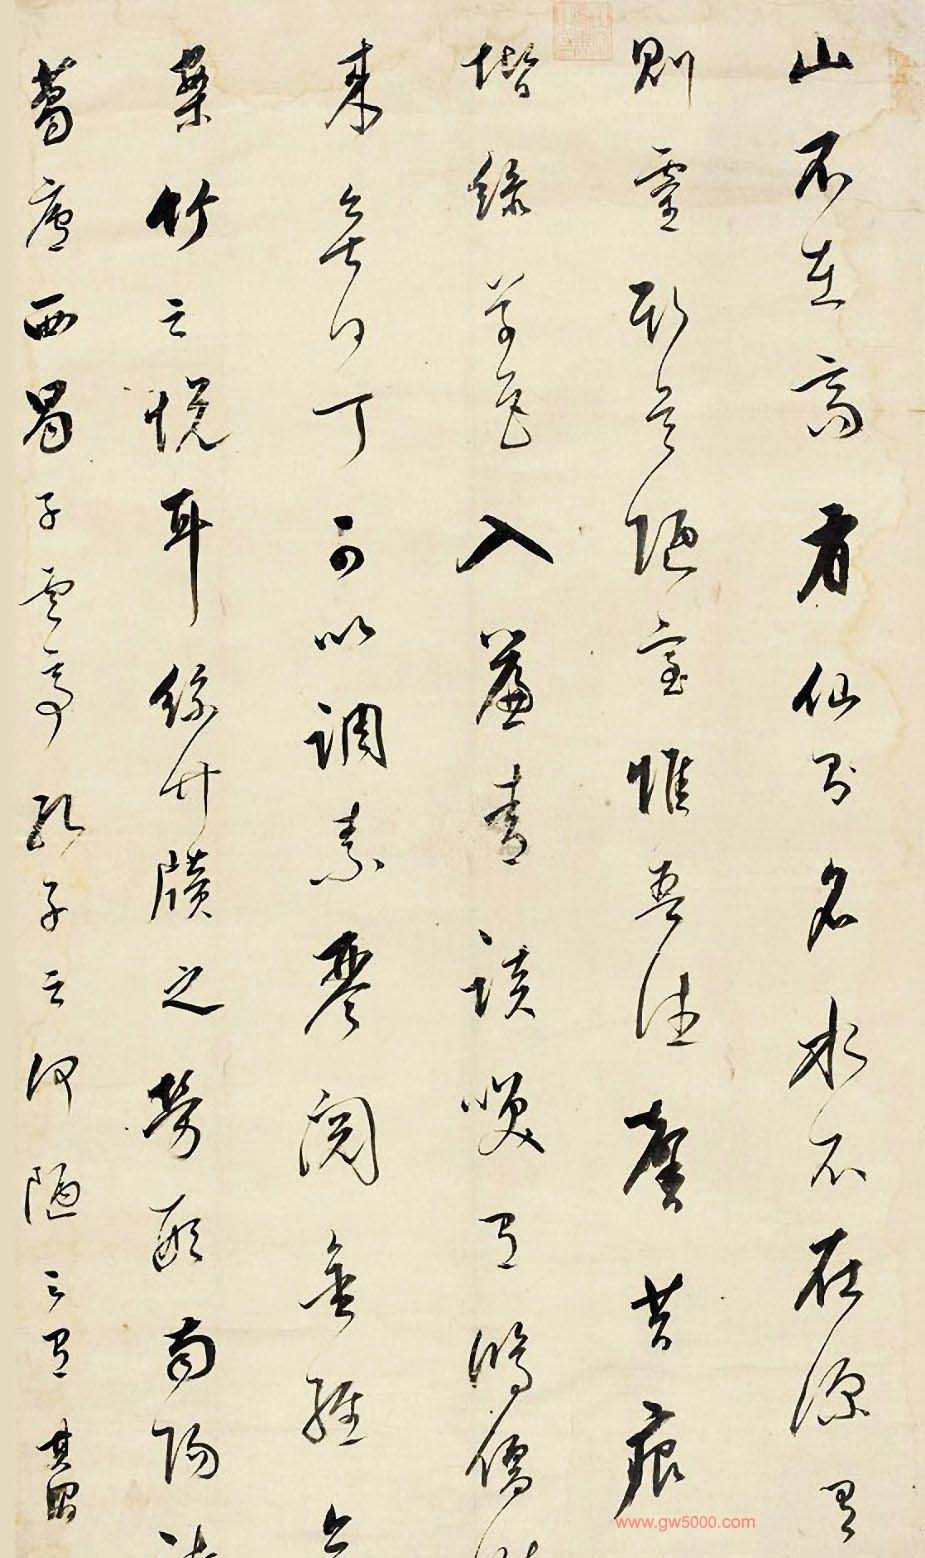 山不在高有仙則名水不在深有
則靈斯是陋室惟吾德馨苔痕
堦綠草色入簾青談笑有鴻儒
來無白丁可以調素琴閱金經
竹之悅耳絲竹牘之勞形南陽
葛廬西蜀子雲亭孔子云何陋之有 其昌
www.gw5000.com